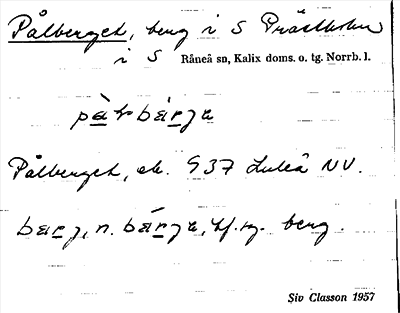 Pålberget, berg i S Prästholm
i S Råneå sn, Kalix doms. o. tg. Norrb. l.
Pålberget, ek. 937 Luleå NV.
bærj, n. bærja, bf. sg. berg.
Siv Classon 1957